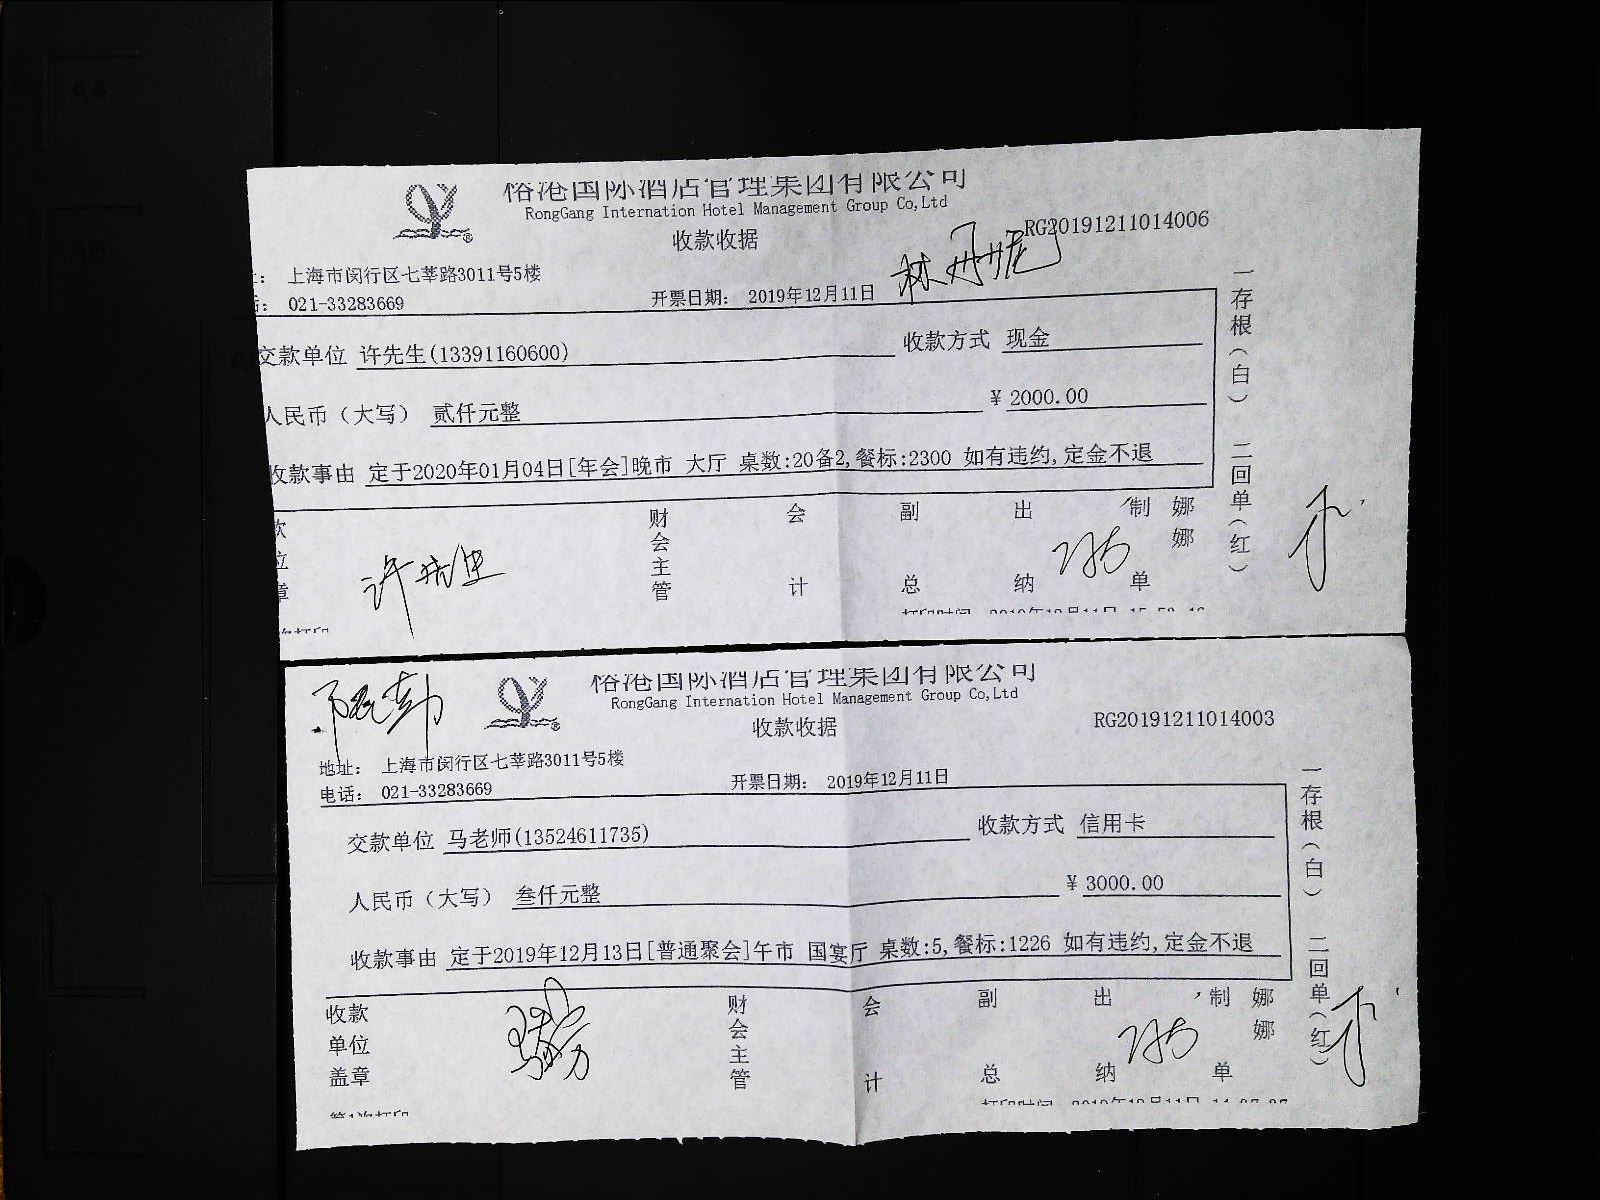 裕港国际酒店管理集团有限公司
RongGang Internation Hotel Management Group Co,Ltd
收款收据
RG20191211014006
林丹妮
上海市闵行区七莘路3011号5楼
021-33283669
开票日期: 2019年12月11日
交款单位 许先生(13391160600) 收款方式 现金
人民币（大写） 贰仟元整 ¥ 2000.00
收款事由 定于2020年01月04日[年会]晚市 大厅 桌数:20备2,餐标:2300 如有违约,定金不退
财会主管 会计 副总 出纳 制单 娜娜
许先生
一存根(白) 二回单(红)
打印时间 2019年12月11日
裕港国际酒店管理集团有限公司
RongGang Internation Hotel Management Group Co,Ltd
收款收据
RG20191211014003
地址: 上海市闵行区七莘路3011号5楼
电话: 021-33283669
开票日期: 2019年12月11日
交款单位 马老师(13524611735) 收款方式 信用卡
人民币（大写） 叁仟元整 ¥ 3000.00
收款事由 定于2019年12月13日[普通聚会]午市 国宴厅 桌数:5,餐标:1226 如有违约,定金不退
收款单位盖章 财会主管 会计 副总 出纳 制单 娜娜
一存根(白) 二回单(红)
第1次打印
打印时间 2019年12月11日